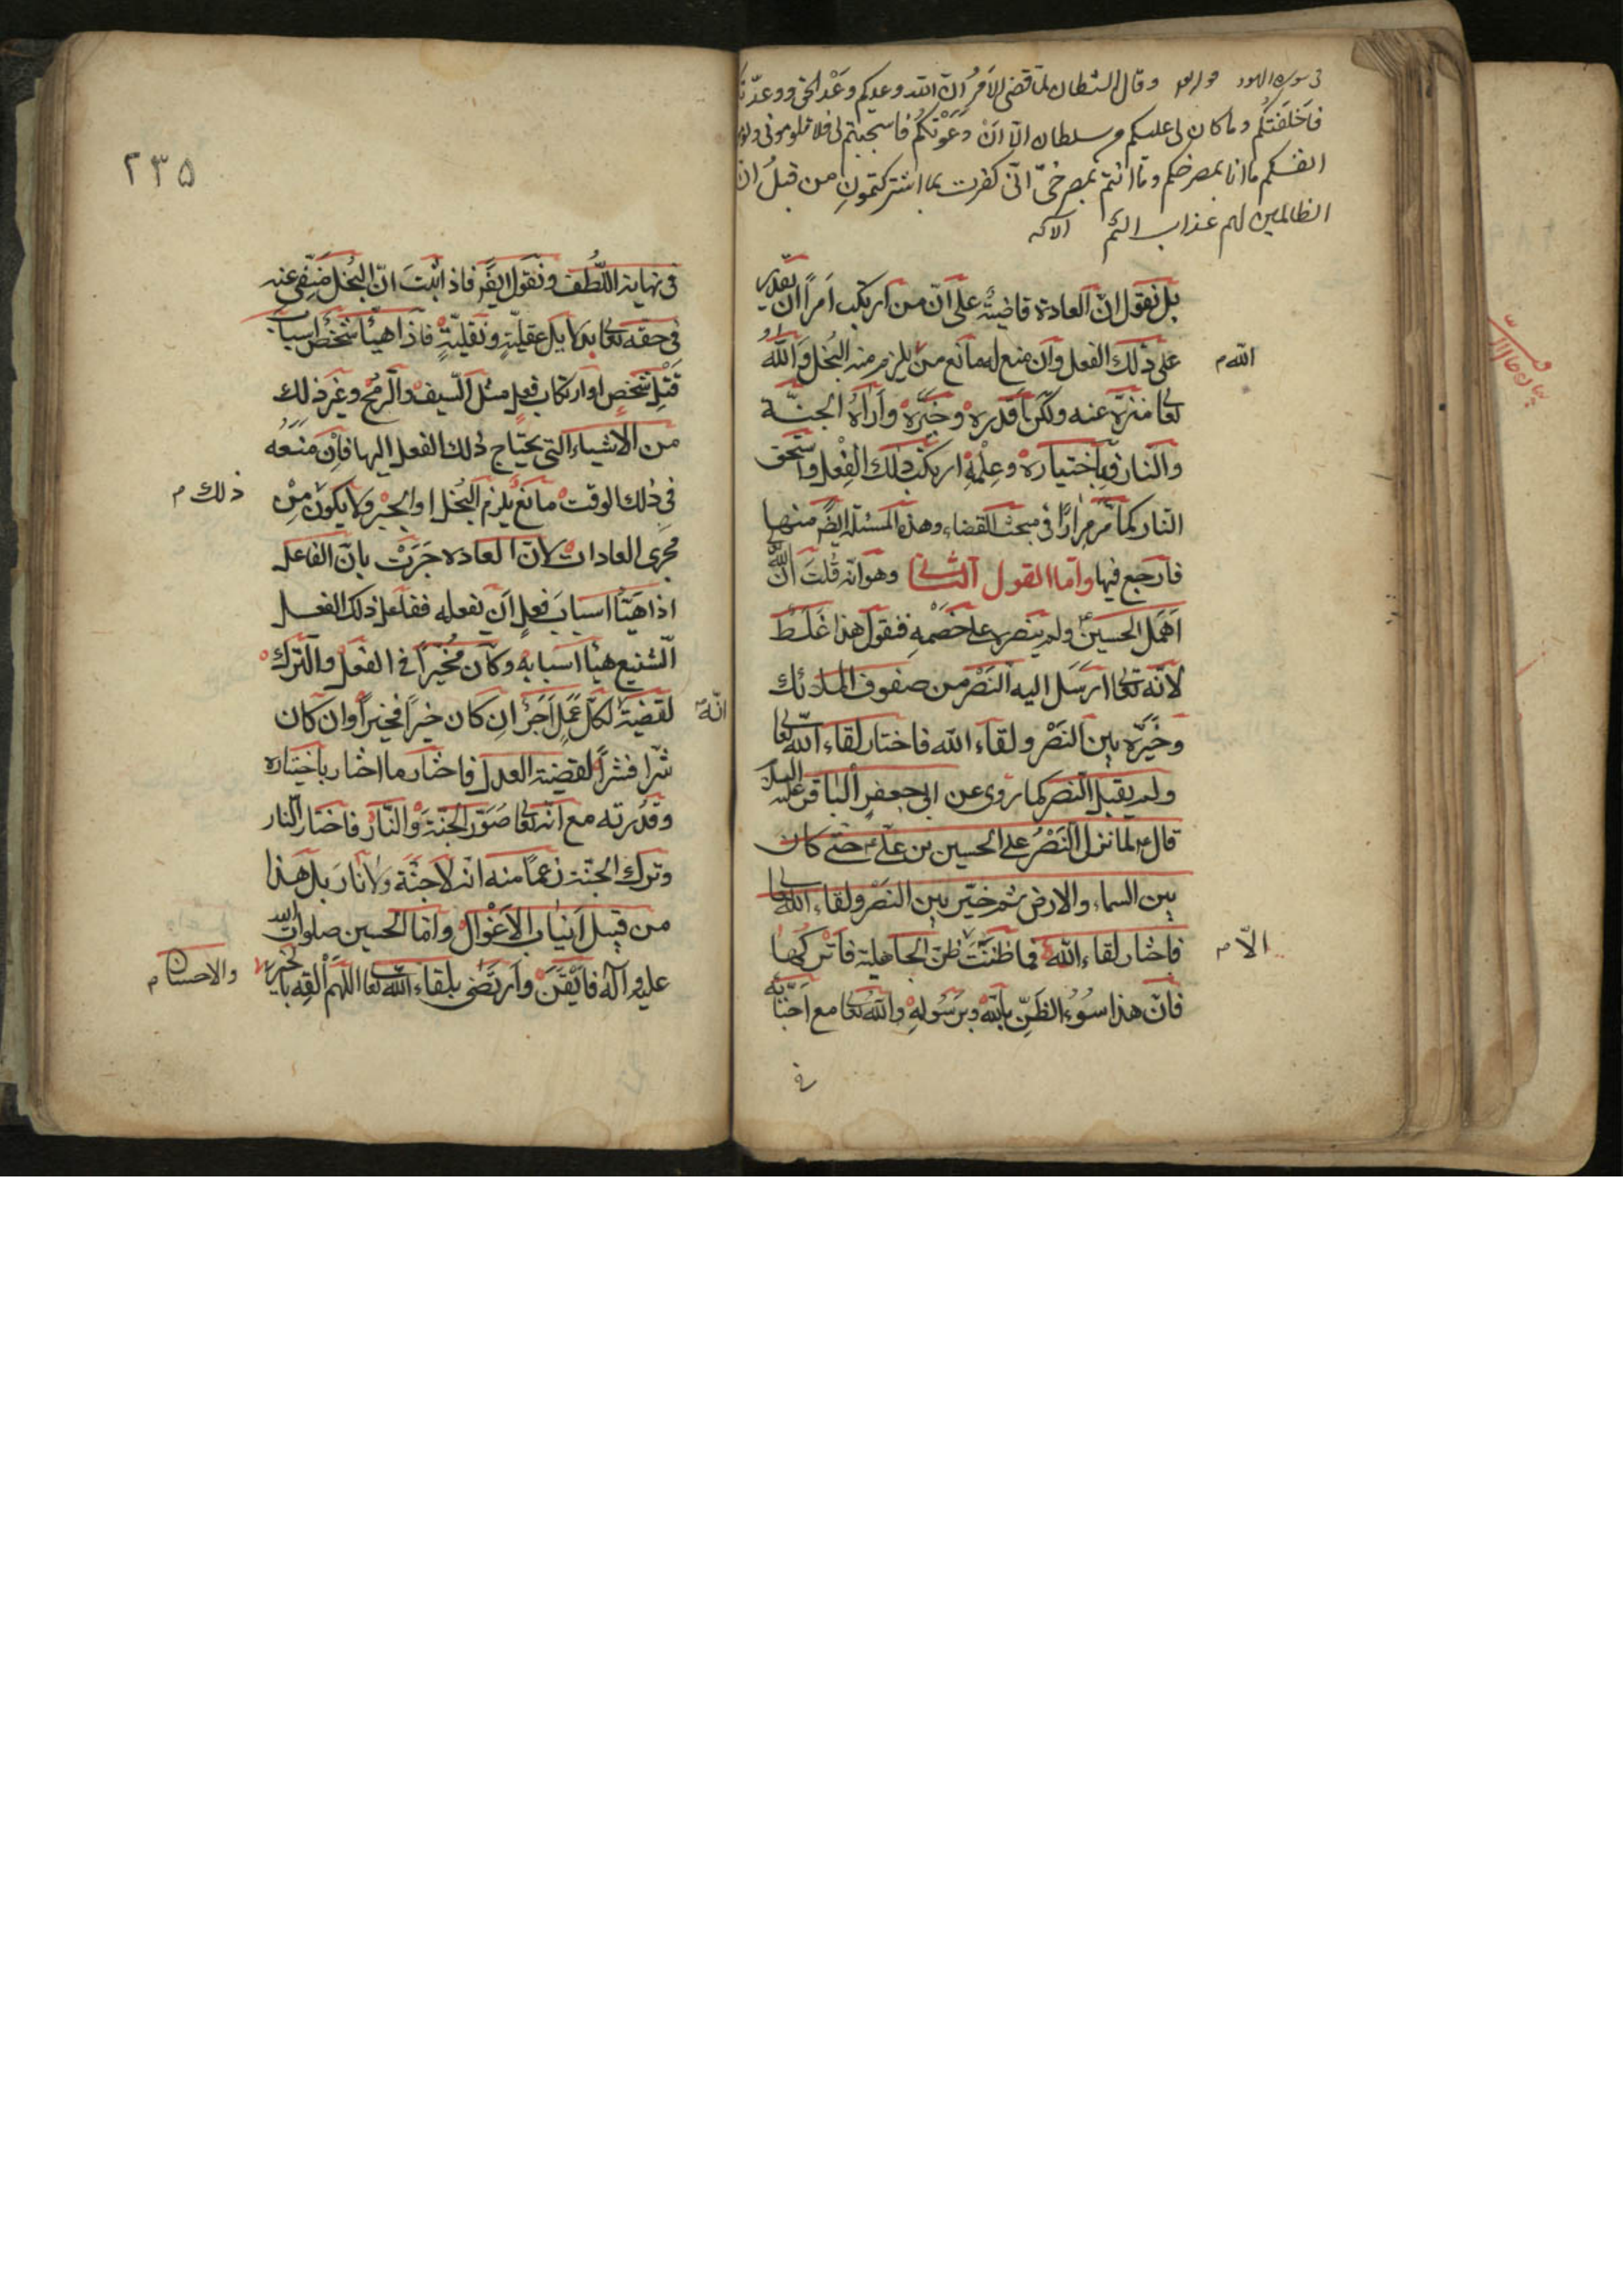 وقال الشيطان لما قضى الامر ان الله وعدكم وعد الحق ووعدتكم
فاخلفتكم وما كان لي عليكم من سلطان الا ان دعوتكم فاستجبتم لي فلا تلوموني ولوموا
انفسكم ما انا بمصرخكم وما انتم بمصرخي اني كفرت بما اشركتمون من قبل ان
الظالمين لهم عذاب اليم الآية
بل نقول ان العادة قاضية على ان من ارتكب امرا ان يقدره
على ذلك الفعل وان منع له مانع من يلزم منه البخل والله
تعا منزه عنه ولكن اقدره وخيره واراه الجنة
والنار فباختياره وعلمه ارتكب ذلك الفعل واستحق
النار كما مر مرارا في مبحث القضاء وهذه المسئلة ايضً منها
فارجع فيها واما القول الثاني وهو انه قلت ان الله
اهمل الحسين ولم ينصره على خصمه فنقول هذا غلط
لانه تعا ارسل اليه النصر من صفوف الملائك
وخيره بين النصر ولقاء الله فاختار لقاء الله تعا
ولم يقبل النصر كما روى عن ابي جعفر الباقر عليه السلم
قال لما نزل النصر على الحسين بن علي حتى كان
بين السماء والارض ثم خير بين النصر ولقاء الله تعا
فاختار لقاء الله فما ظننت ظن الجاهلية فاتركها
فان هذا سوء الظن بالله وبرسوله والله تعا مع احبائه
الله م
الا م
في
٢٣٥
في نهاية اللطف ونقول ايضً فاذ اثبت ان البخل منفي عنه
في حقه تعا بدلايل عقلية ونقلية فاذا هيئا شخص اسباب
قتل شخص او ارتكاب فعل مثل السيف والرمح وغير ذلك
من الاشياء التي يحتاج ذلك الفعل اليها فان منعه
في ذلك الوقت مانع يلزم البخل او الجبر ولا يكون من
مجرى العادات لان العادة جرت بان الفاعل
اذا هيئا اسباب فعل ان يفعله ففاعل ذلك الفعل
الشنيع هيئا اسبابه وكان مخيرا في الفعل والترك
لقضية لكل عمل اجر ان كان خيرا فخيرا وان كان
شرا فشرا لقضية العدل فاختار ما اختار باختياره
وقدرته مع انه تعا صور الجنة والنار فاختار النار
وترك الجنة زعما منه انه لا جنة ولا نار بل هذا
من قبيل انياب الاغوال واما الحسين صلوات الله
عليه وآله فايقن وارتضى بلقاء الله تعا اللهم القه بالخير
ذلك م
انه
والاحسان م